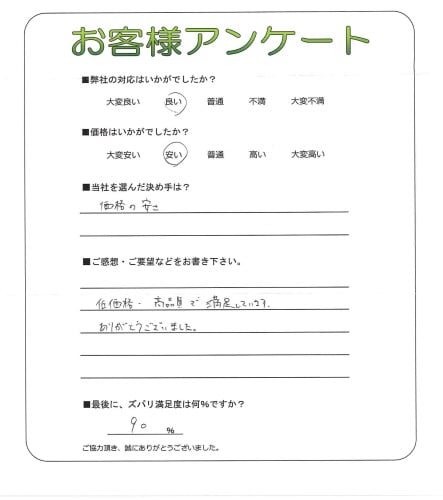 お客様アンケート
■弊社の対応はいかがでしたか?
大変良い 良い 普通 不満 大変不満
■価格はいかがでしたか?
大変安い 安い 普通 高い 大変高い
■当社を選んだ決め手は?
価格の安さ
■ご感想・ご要望などをお書き下さい。
低価格・高品質で満足しています.
ありがとうございました。
■最後に、ズバリ満足度は何%ですか?
90 %
ご協力頂き、誠にありがとうございました。